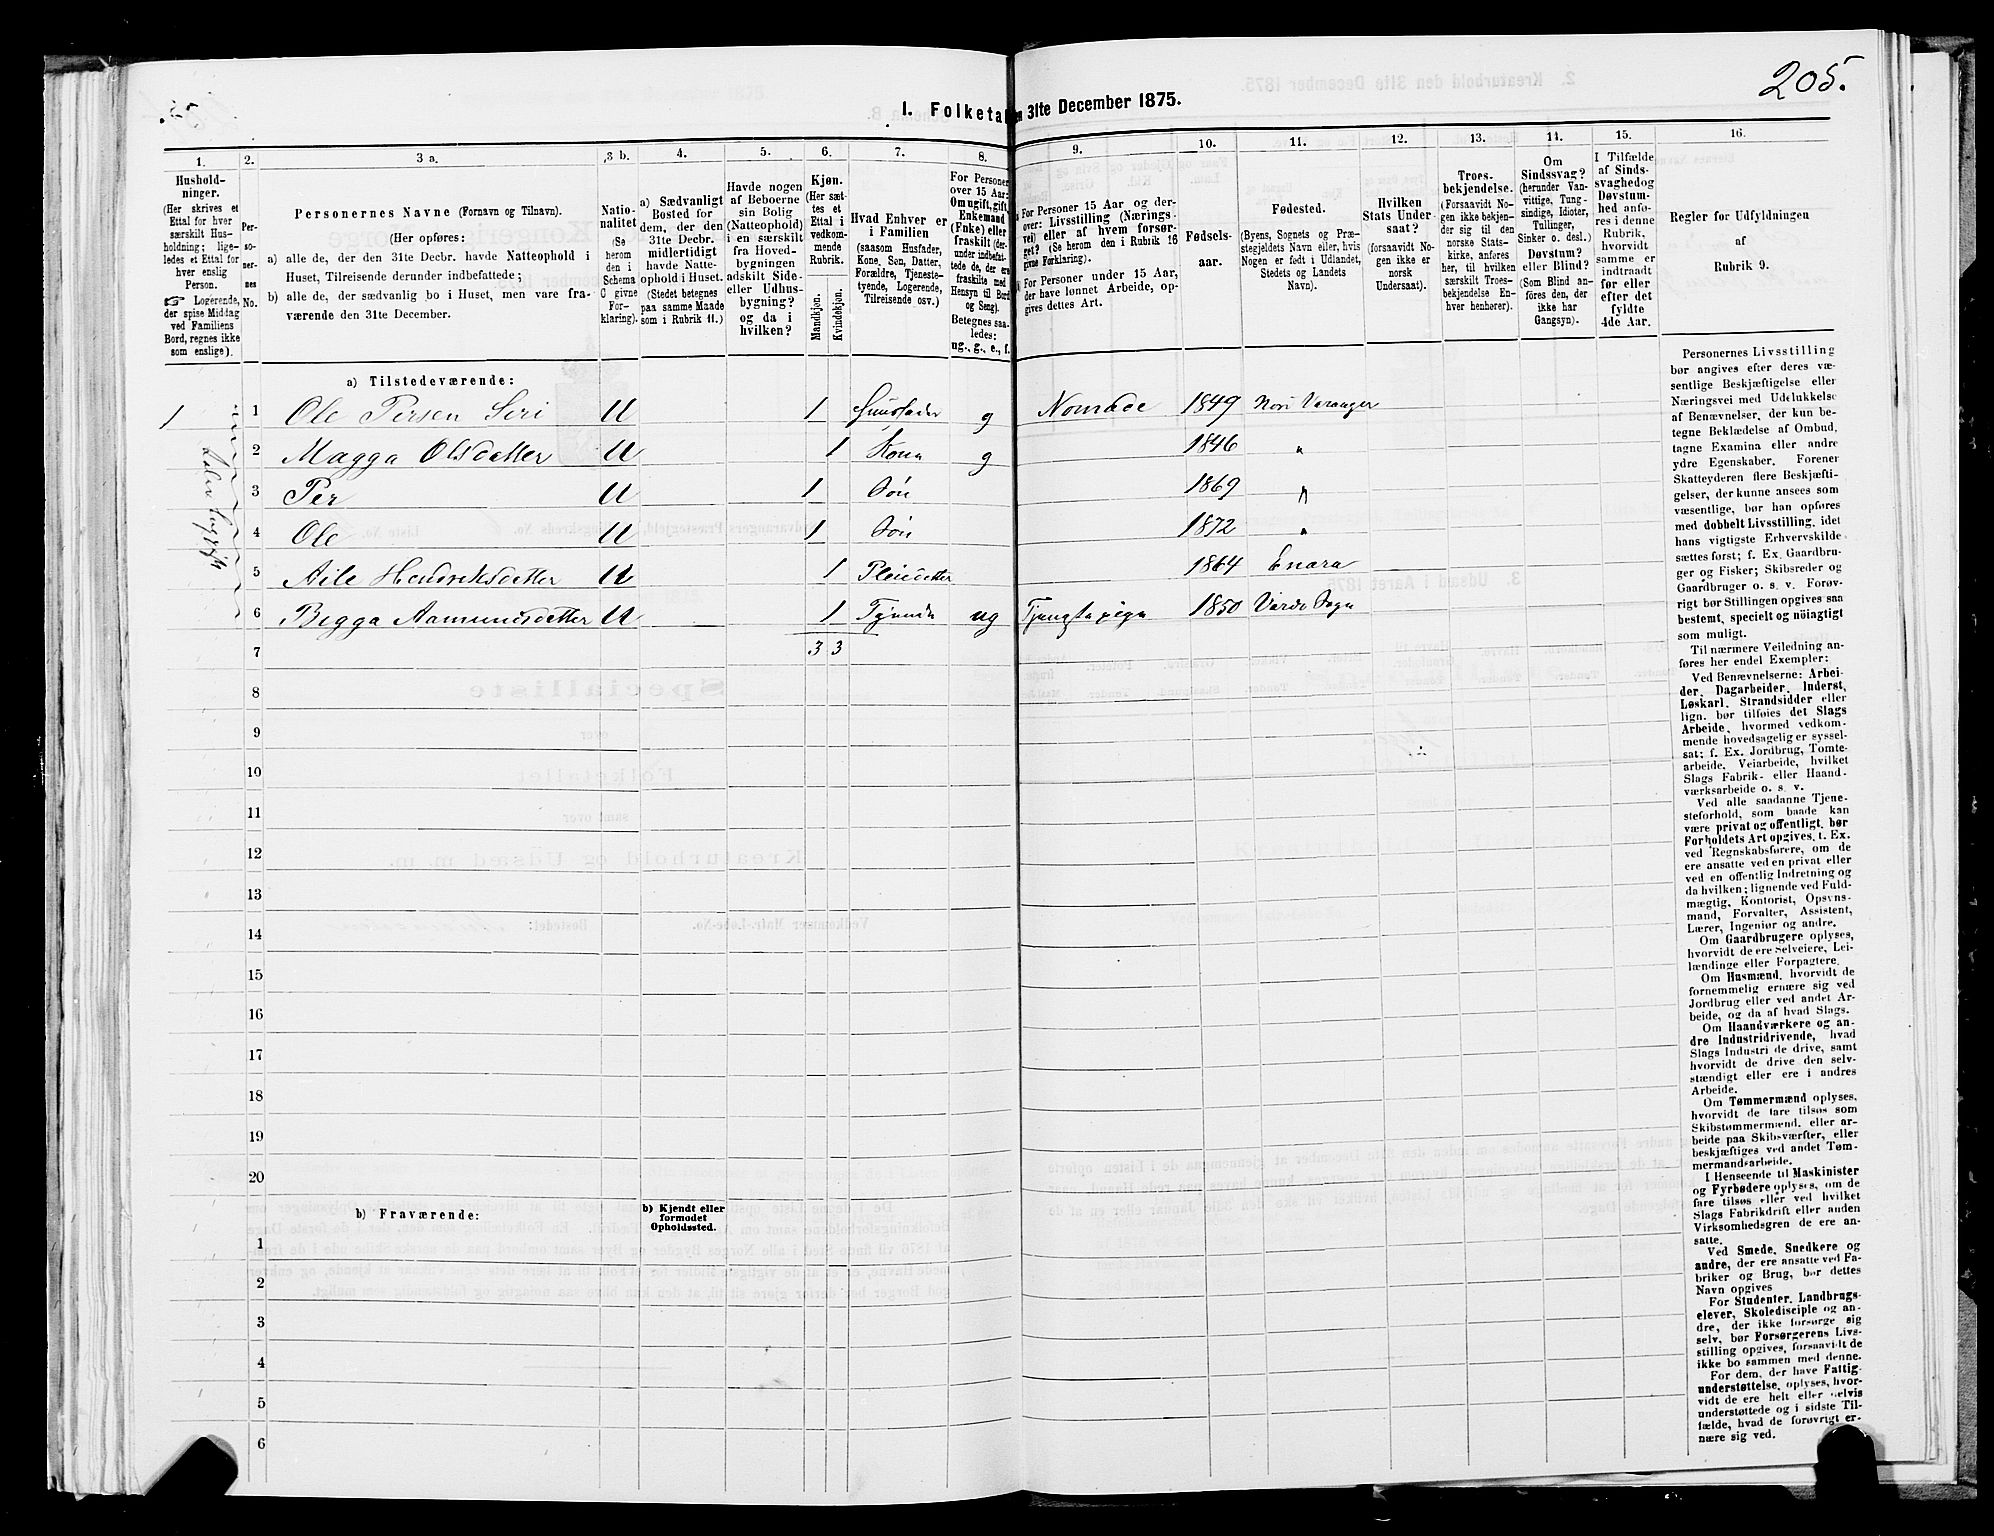 205.
I. Folketal den 31te December 1875.
1. 2. 3 a. 3 b. 4. 5. 6. 7. 8. 9. 10. 11. 12. 13. 14. 15. 16.
Hushold-
ninger.
(Her skrives et
Ettal for hver
særskilt Hus-
holdning; lige-
ledes et Ettal for
hver enslig
Person.
☞ Logerende,
der spise Middag
ved Familiens
Bord, regnes ikke
som enslige).
Per-
so-
ner-
nes
No.
Personernes Navne (Fornavn og Tilnavn).
(Her opføres:
a) alle de, der den 31te Decbr. havde Natteophold i
Huset, Tilreisende derunder indbefattede;
b) alle de, der sædvanlig bo i Huset, men vare fra-
værende den 31te December.
Natio-
nalitet
(Se
herom
den i
Schema
C givne
For-
klaring).
a) Sædvanligt
Bosted for
dem, der den
31te Decbr.
midlertidigt
havde Natte-
ophold i Huset.
(Stedet betegnes
paa samme Maade
som i Rubrik 11.)
Havde nogen
af Beboerne
sin Bolig
(Natteophold)
i en særskilt
fra Hoved-
bygningen
adskilt Side-
eller Udhus-
bygning?
og da i
hvilken?
Kjøn.
(Her sæt-
tes et
Ettal i
vedkom-
mende
Rubrik.
Mandkjøn.
Kvindekjøn.
Hvad Enhver er
i Familien
(saasom Husfader,
Kone, Søn, Datter,
Forældre, Tjeneste-
tyende, Logerende,
Tilreisende osv.)
For Personer
over 15 Aar:
Om ugift, gift,
Enkemand
(Enke) eller
fraskilt (der-
under indbefat-
tede de, der ere
fraskilte med
Hensyn til Bord
og Seng).
Betegnes saa-
ledes:
ug., g., e., f.
For Personer 15 Aar og der-
over: Livsstilling (Nærings-
vei) eller af hvem forsør-
get? (Se herom den i Rubrik 16
givne Forklaring).
For Personer under 15 Aar,
der have lønnet Arbeide, op-
gives dettes Art.
Fødsels-
aar.
Fødested.
(Byens, Sognets og Præ-
stegjeldets Navn eller, hvis
Nogen er født i Udlandet,
Stedets og Landets
Navn).
Hvilken
Stats Under-
saat?
(forsaavidt No-
gen ikke er
norsk
Undersaat).
Troes-
bekjendelse.
(Forsaavidt No-
gen ikke bekjen-
der sig til den
norske Stats-
kirke, anføres
her, til hvilken
særskilt Troes-
bekjendelse En-
hver henhører).
Om
Sindssvag?
(herunder Van-
vittige, Tung-
sindige, Idioter,
Tullinger,
Sinker o. desl.)
Døvstum?
eller Blind?
(Som Blind an-
føres den, der
ikke har
Gangsyn).
I Tilfælde
af Sinds-
svaghed og
Døvstum-
hed anfø-
res i denne
Rubrik,
hvorvidt
samme er
indtraadt
før eller
efter det
fyldte
4de Aar.
Regler for Udfyldningen
af
Rubrik 9.
a) Tilstedeværende:
1 1 Ole Persen Seri U 1 Huusfader g Nomade 1849 Nord Varanger
2 Magga Olsdatter U 1 Kone g 1846 "
3 Per U 1 Søn 1869 "
4 Ole U 1 Søn 1872 "
5 Aile Hendriksdatter U 1 Pleiedatter 1864 Enara
6 Bigga Aamundsdatter U 1 ug Tjenestepige 1850 Vardø Sogn
7 3 3
8
9
10
11
12
13
14
15
16
17
18
19
20
b) Fraværende:
b) Kjendt eller
formodet
Opholdssted.
1
2
3
4
5
6
Personernes Livsstilling
bør angives efter deres væ-
sentlige Beskjæftigelse eller
Næringsvei med Udelukkelse
af Benævnelser, der kun be-
tegne Beklædelse af Ombud,
tagne Examina eller andre
ydre Egenskaber. Forener
Skatteyderen flere Beskjæfti-
gelser, der kunne ansees som
væsentlige, bør han opføres
med dobbelt Livsstilling, idet
hans vigtigste Erhvervskilde
sættes først; f. Ex. Gaardbru-
ger og Fisker; Skibsreder og
Gaardbruger o. s. v. Forøv-
rigt bør Stillingen opgives saa
bestemt, specielt og nöiagtigt
som muligt.
Til nærmere Veiledning an-
føres her endel Exempler:
Ved Benævnelserne: Arbei-
der, Dagarbeider, Inderst,
Løskarl, Strandsidder eller
lign. bør tilføies det Slags
Arbeide, hvormed vedkom-
mende hovedsagelig er syssel-
sat; f. Ex. Jordbrug, Tomte-
arbeide, Veiarbeide, hvilket
Slags Fabrik- eller Haand-
værksarbeide o. s. v.
Ved alle saadanne Tjene-
steforhold, som baade kan
være privat og offentligt, bør
Forholdets Art opgives, t. Ex.
ved Regnskabsførere, om de
ere ansatte ved en privat eller
ved en offentlig Indretning og
da hvilken; lignende ved Fuld-
mægtig, Kontorist, Opsyns-
mand, Forvalter, Assistent,
Lærer, Ingeniør og andre.
Om Gaardbrugere oplyses,
hvorvidt de ere Selveiere, Lei-
lændinge eller Forpagtere.
Om Husmænd, hvorvidt de
fornemmelig ernære sig ved
Jordbrug eller ved andet Ar-
beide, og da af hvad Slags.
Om Haandværkere og an-
dre Industridrivende, hvad
Slags Industri de drive, samt
hvorvidt de drive den selv-
stændigt eller ere i andres
Arbeide.
Om Tømmermænd oplyses,
hvorvidt de fare tilsøs som
Skibstømmermænd, eller ar-
beide paa Skibsværfter, eller
beskjæftiges ved andet Tøm-
mermandsarbeide.
I Henseende til Maskinister
og Fyrbødere oplyses, om de
fare tilsøs eller ved hvilket
Slags Fabrikdrift eller anden
Virksomhedsgren de ere an-
satte.
Ved Smede, Snedkere og
andre, der ere ansatte ved Fa-
briker og Brug, bør dettes
Navn opgives
For Studenter, Landbrugs-
elever, Skoledisciple og an-
dre, der ikke forsørge sig
selv, bør Forsørgerens Livs-
stilling opgives, forsaavidt de
ikke bo sammen med denne.
For dem, der have Fattig-
understøttelse, oplyses, hvor-
vidt de ere helt eller delvis
understøttede og i sidste Til-
fælde, hvad de forøvrigt er-
nære sig ved.